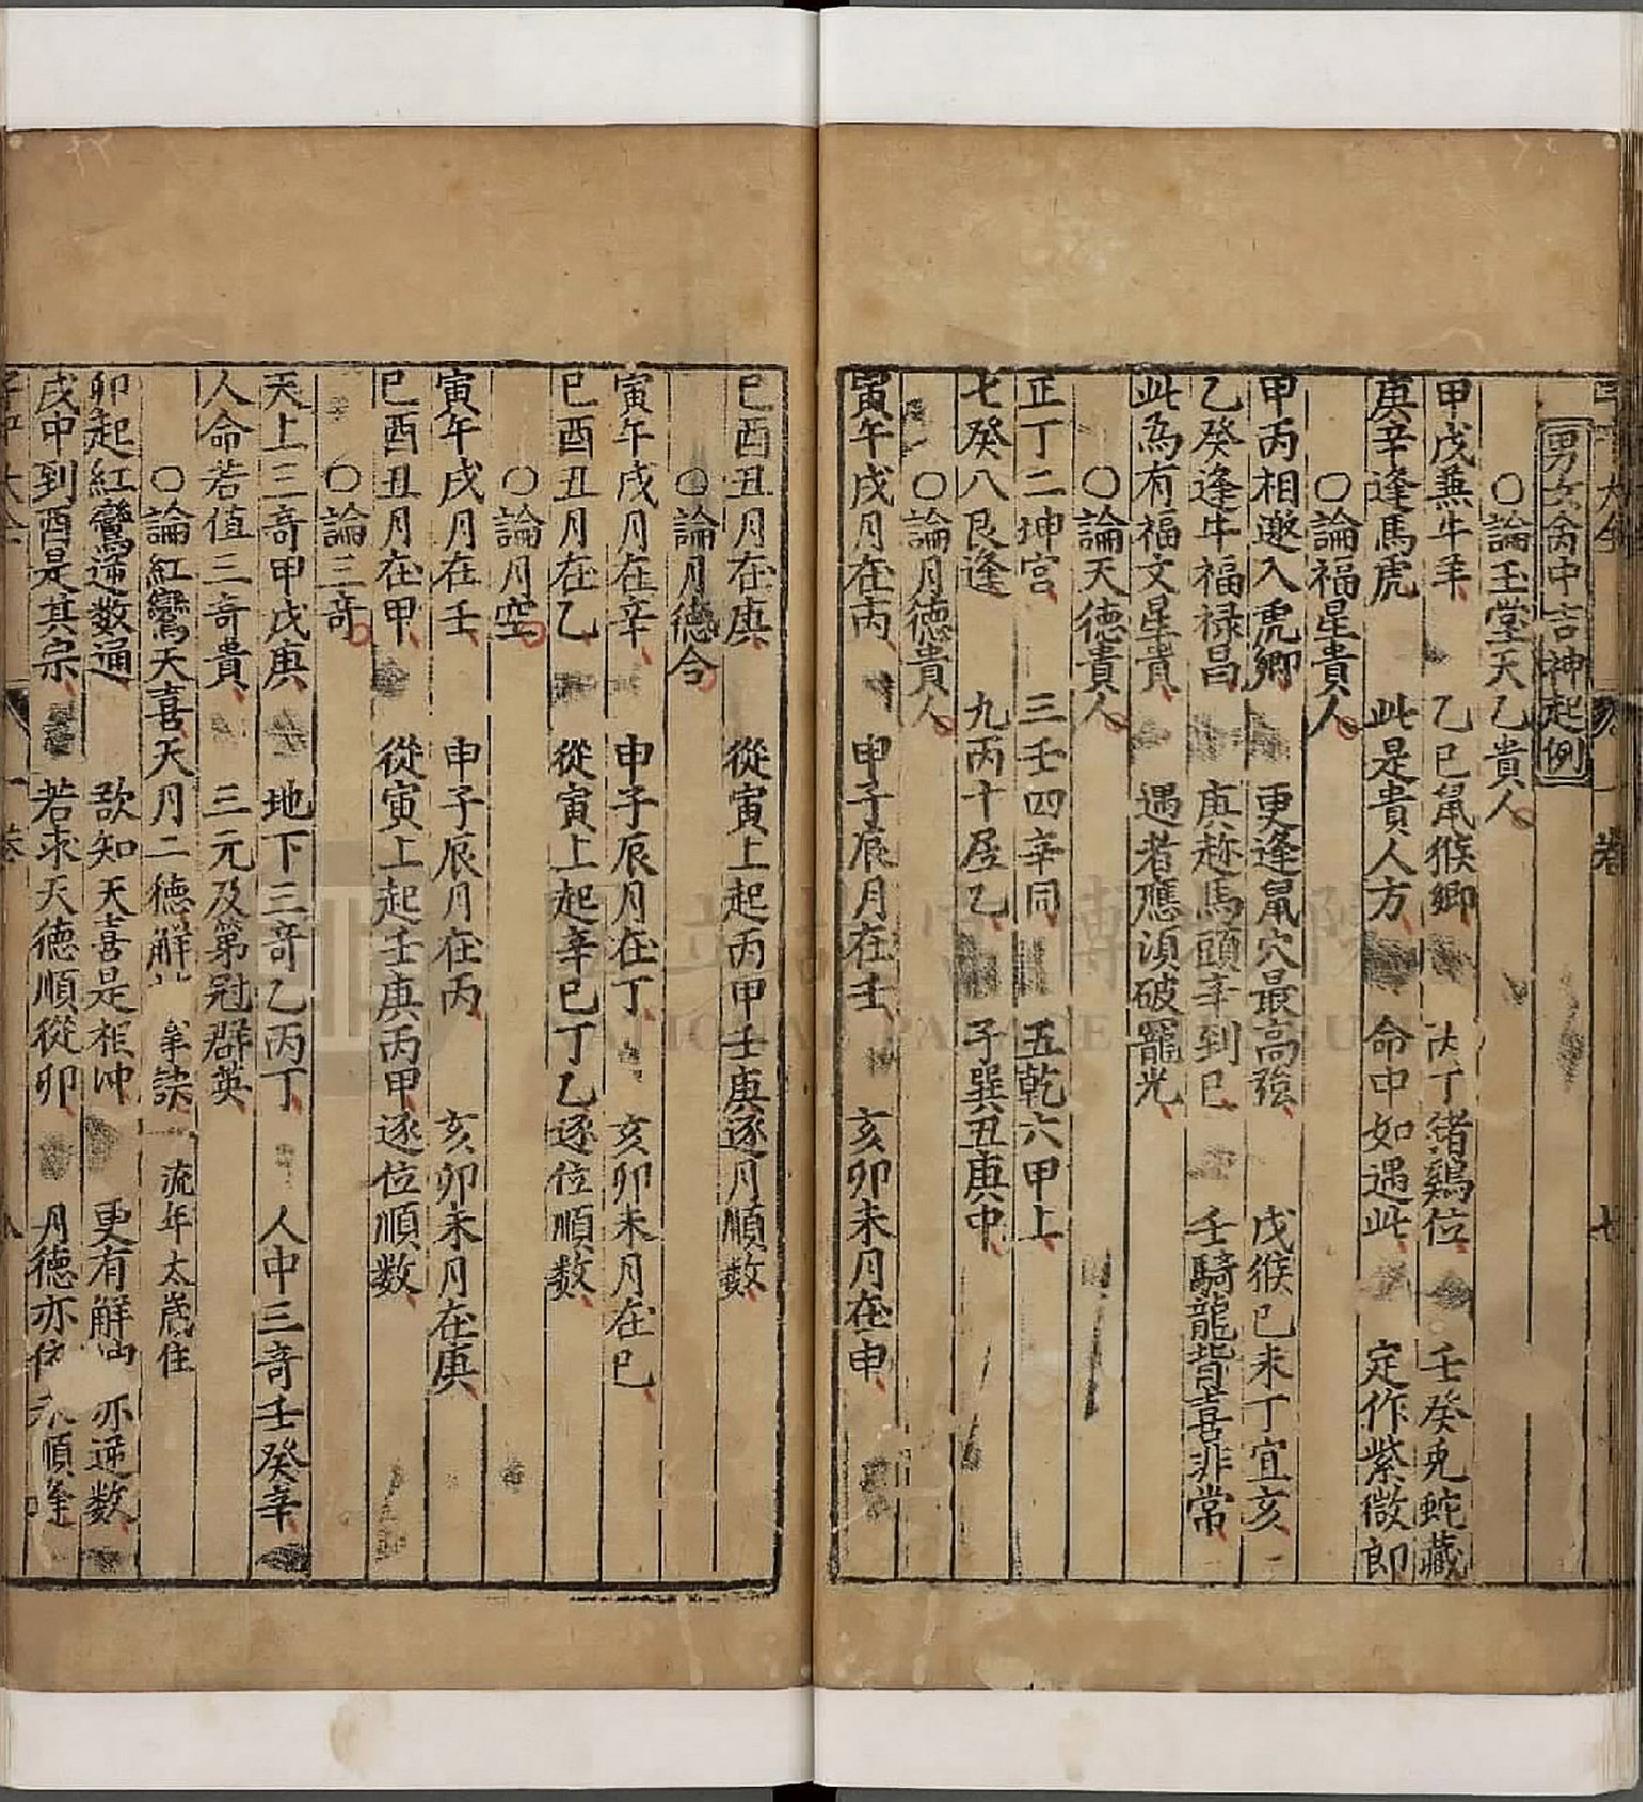 男女命中吉神起例
○論玉堂天乙貴人
甲戊兼牛羊 乙己鼠猴鄉 丙丁猪鷄位 壬癸兎蛇藏
庚辛逢馬虎 此是貴人方 命中如遇此 定作紫微郎
○論福星貴人
甲丙相邀入虎鄉 更逢鼠穴最高強 戊猴己未丁宜亥
乙癸逢牛福祿昌 庚趂馬頭辛到巳 壬騎龍背喜非常
此為有福文星貴 遇者應須破寵光
○論天德貴人
正丁二坤宮 三壬四辛同 五乾六甲上
七癸八艮逢 九丙十居乙 子巽丑庚中
○論月德貴人
寅午戌月在丙 申子辰月在壬 亥卯未月在甲
巳酉丑月在庚 從寅上起丙甲壬庚逐月順數
○論月德合
寅午戌月在辛 申子辰月在丁 亥卯未月在巳
巳酉丑月在乙 從寅上起辛巳丁乙逐位順数
○論月空
寅午戌月在壬 申子辰月在丙 亥卯未月在庚
巳酉丑月在甲 從寅上起壬庚丙甲逐位順数
○論三奇
天上三奇甲戊庚 地下三奇乙丙丁 人中三奇壬癸辛
人命若值三奇貴 三元及第冠群英
○論紅鸞天喜天月二德解 掌訣 流年太歲住
卯起紅鸞逆数通 欲知天喜是相冲 更有解 亦逆数
戌中到酉是其宗 若求天德順從卯 月德亦 順逢
NATIONAL PALACE MUSEUM